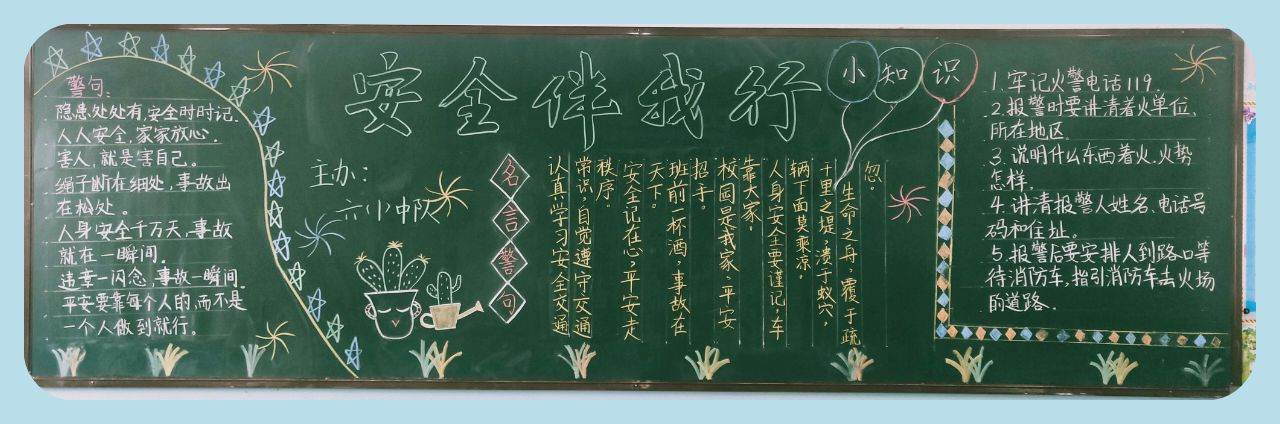 安全伴我行
警句:
隐患处处有,安全时时记.
人人安全,家家放心.
害人,就是害自己。
绳子断在细处,事故出
在松处。
人身安全千万天,事故
就在一瞬间.
违章一闪念,事故一瞬间.
平安要靠每个人的,而不是
一个人做到就行.
主办:
六小中队
名言警句
认真学习安全交通
常识,自觉遵守交通
秩序。
安全记在心,平安走
天下。
班前一杯酒,事故在
招手。
校园是我家,平安
靠大家。
人身安全要谨记,车
辆下面莫乘凉。
千里之堤,溃于蚁穴,
生命之舟,覆于疏
忽。
小知识
1.牢记火警电话119.
2.报警时要讲清着火单位,
所在地区.
3.说明什么东西着火.火势
怎样.
4.讲清报警人姓名、电话号
码和住址。
5.报警后要安排人到路口等
待消防车,指引消防车去火场
的道路.